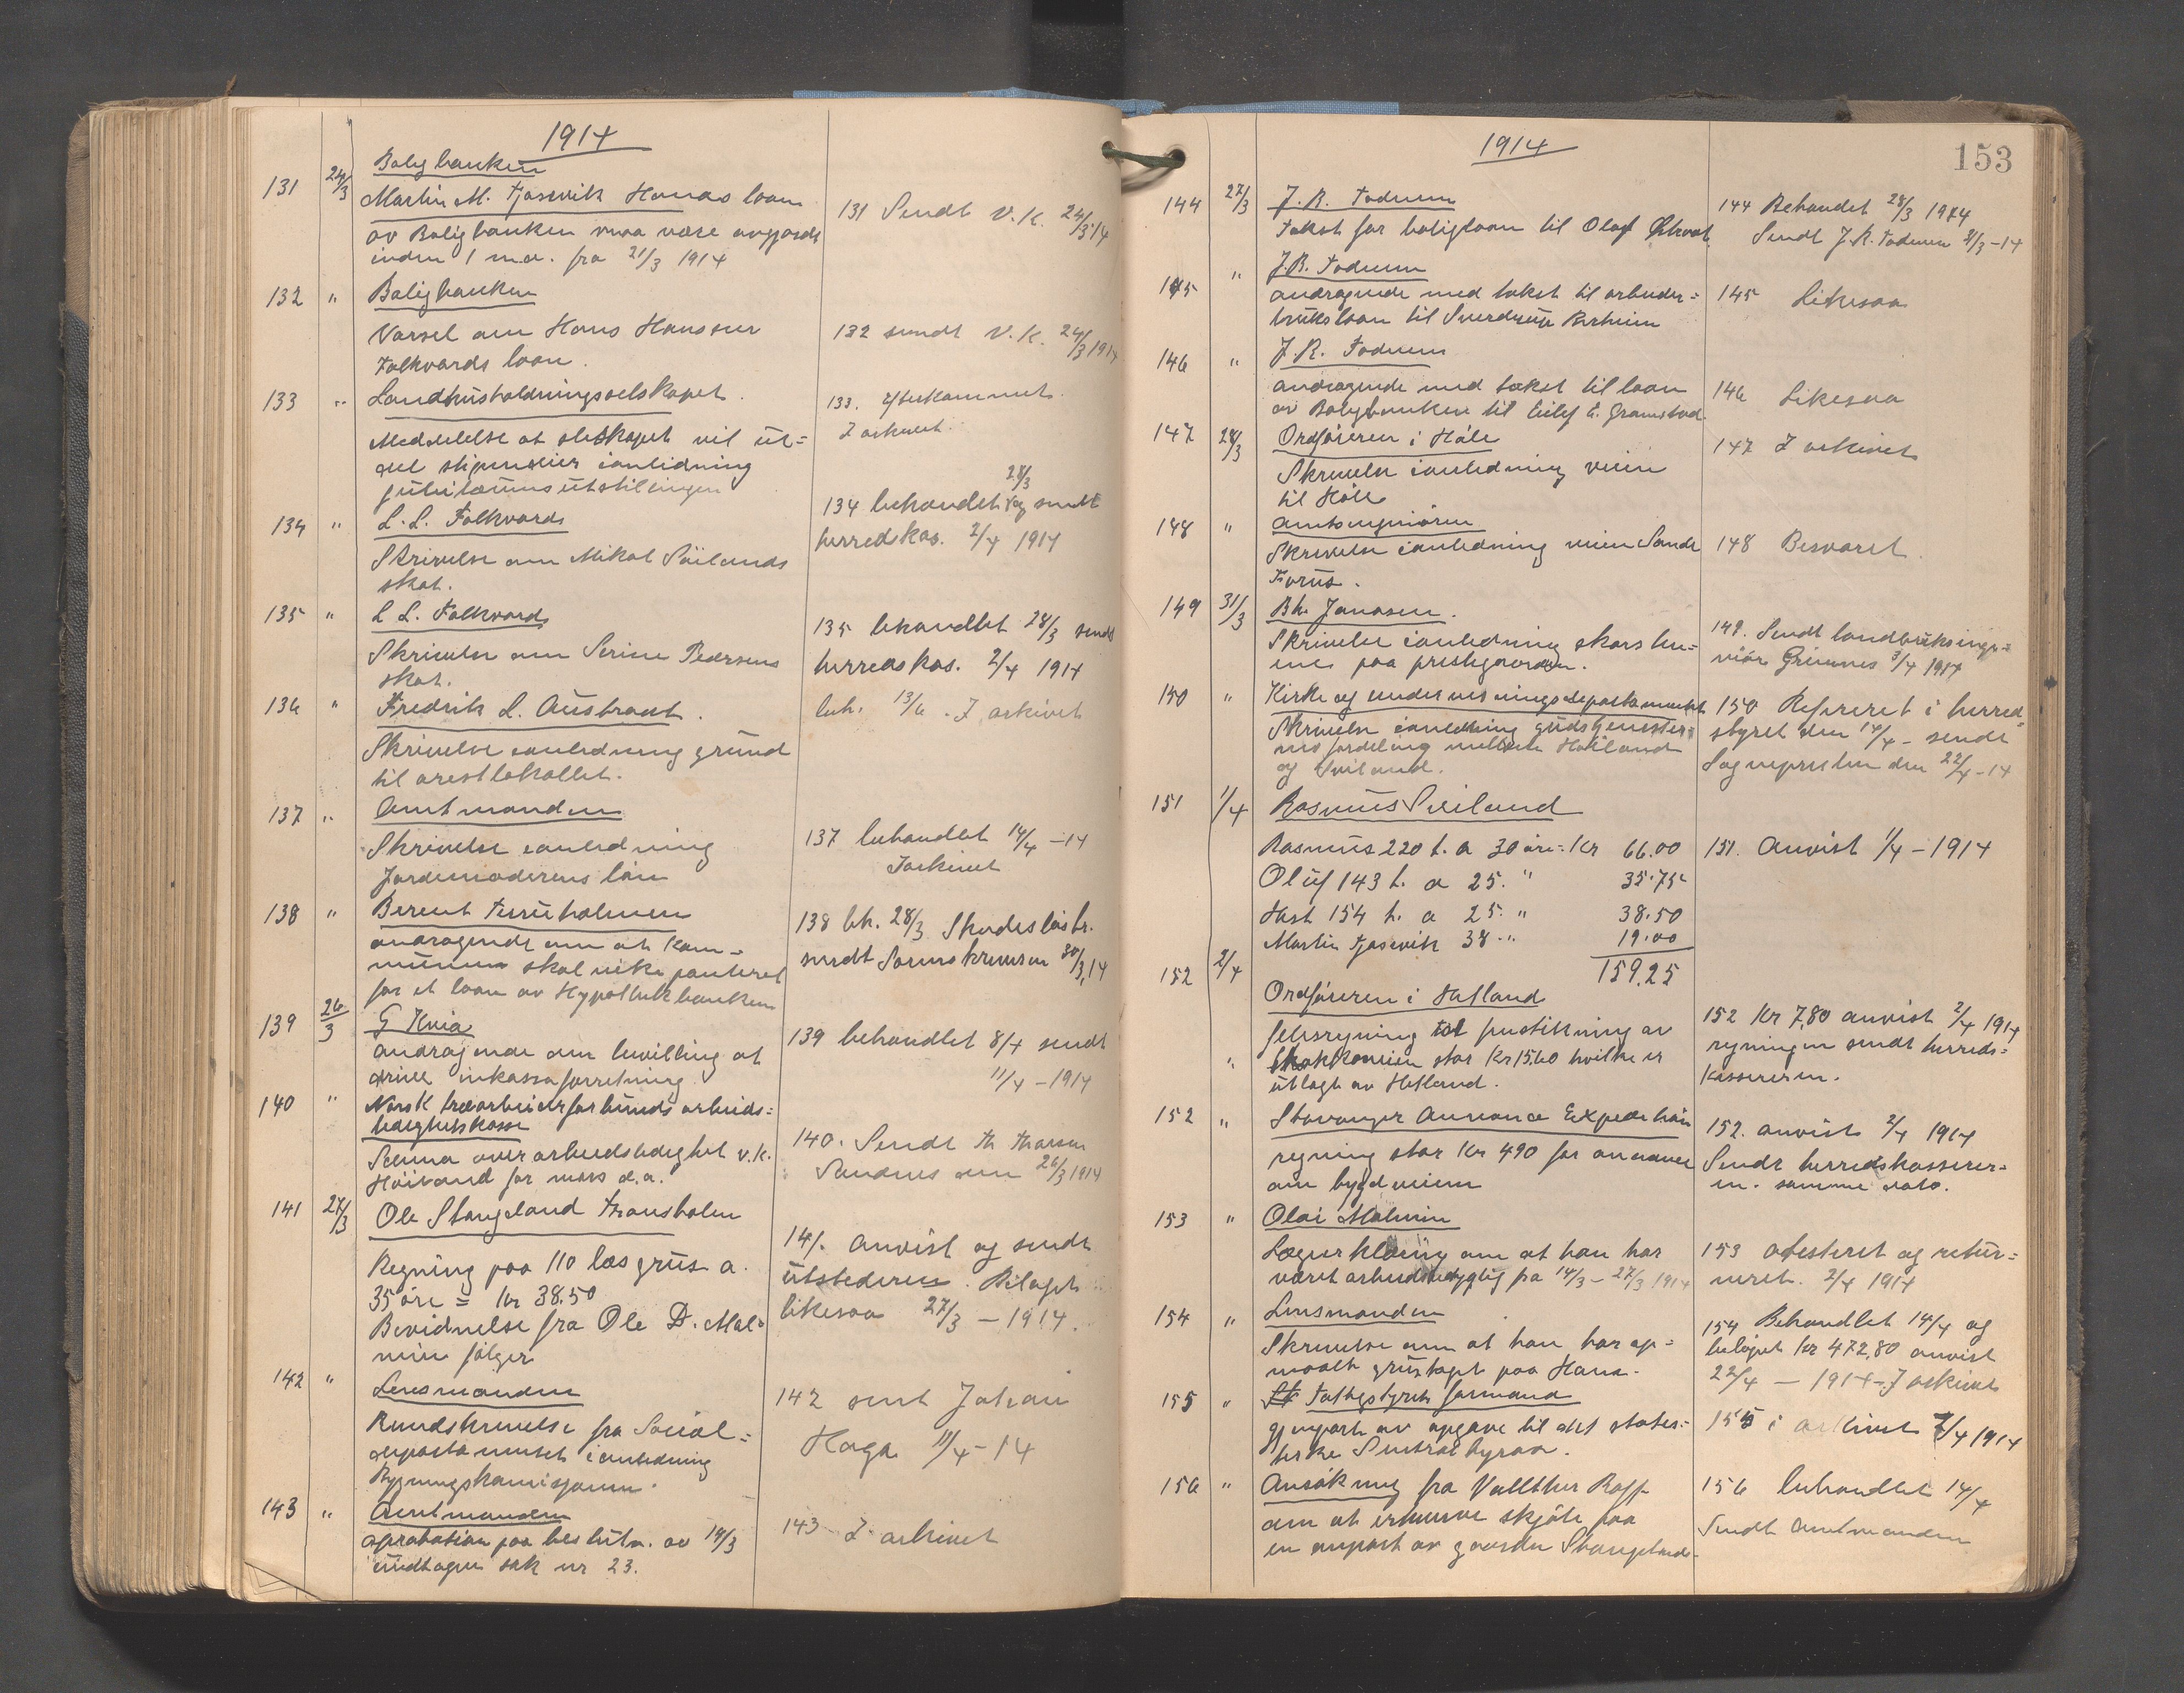 1914
Boligbanken
131 24/3 Martin M. Tjosevik Hanas loan
av Boligbanken maa være avgjordt
inden 1 m.d. fra 21/3 1914
131 Sendt V.K. 24/3 14
132 " Boligbanken
Varsel om Hans Hansens
Folkvords loan.
132 sendt V.K. 24/3 1914
133 " Landhusholdningsselskapet.
Meddelelse at selskapet vil ut=
del stipendier ianledning
jubilæumsutstillingen
133. Efterkommet.
I arkivet.
134 " L. L. Folkvord
Skrivelse om Mikal Söilands
skat.
28/3
134 behandlet og sendt
herredskas. 2/4 1914
135 " L L. Folkvord
Skrivelse om Serine Pedersens
skat.
135 behandlet 28/3 sendt
herredskas. 2/4 1914
136 " Fredrik L. Austraat.
Skrivelse ianledning grund
til arestlokallet.
beh. 13/6. I arkivet
137 " Amtmanden
Skrivelse ianledning
Jordemoderens lön
137 behandlet 14/4 -14
I arkivet
138 " Berent
andragende om at kom=
munen skal vike panteret
for et loan av Hypothekbanken
138 bh. 28/3 Skadeslösbr.
sendt Sorenskriveren 30/3 14
139 26/3 G Kvia
andragende om bevilling at
drive inkassoforretning
139 behandlet 8/4 sendt
11/4 - 1914
140 " Norsk træarbeiderforbunds arbeids=
ledighetskasse
Skema over arbeidsledighet v.k.
Höiland for mars d.a.
140. Sendt Th Tharsen
Sandnes den 26/3 1914
141 27/3 Ole Stangeland Transholen
Regning paa 110 læs grus a.
35 öre = kr 38.50
Bevidnelse fra Ole D. Mal=
min fölger
141. Anvist og sendt
utstederen. Bilaget
likesaa 27/3 - 1914.
142 " Lensmanden
Rundskrivelse fra Social=
departamentet ianledning
Bygningskomisjonen.
142 sent Johan
Haga 11/4 - 14
143 " Amtmanden
aprobation paa beslutn. av 14/3
undtagen sak nr 23.
143 I arkivet
1914
153
144 27/3 J. R. Foduem
Takst for boliglaan til Olaf
144 Behandlet 28/3 1914
Sendt J. R. Foduem 31/3 - 14
145 " J. R. Foduem
andragende med takst til arbeider=
brukslaan til Sverdrup
145 Likesaa
146 " J. R. Foduem
andragende med takst til laan
av Boligbanken til Eilef E. Gramstad
146 Likesaa
147 28/3 Ordföreren i Höle
Skrivelse ianledning veien
til Höle
147 I arkivet
148 " Amtsingeniören
Skrivelse ianledning veien Sande
Forus.
148 Besvaret.
149 31/3 Bh. Jonasen.
Skrivelse ianledning skorsten=
ene paa prestegaarden.
149. Sendt landbruksinge=
niör Grimnes 3/4 1914
150 " Kirke og undervisningsdepartamentet
Skrivelse ianledning gudstjenester
nes fordeling mellem Höiland
og Soiland.
150 Refereret i herred
styret den 14/4 - sendt
Sognepresten den 22/4 -14
151 1/4 Rasmus Soiland
Rasmus 220 t. a 30 öre = Kr 66.00
Oluf 143 t. a 25. " 35.75
Hast 154 t. a 25. " 38.50
Martin Tjosevik 38 " 19.00
159.25
151. Anvist 1/4 - 1914
152 2/4 Ordföreren i Hetland
regning
" veien stor Kr 15.60 hvilke er
utlagt av Hetland.
152 Kr 7,80 anvist 2/4 1914
regningen sendt herreds=
kassereren.
152 " Stavanger Annonce Expedition
regning stor Kr 490 for annoncer
om bygdveiene
152. anvist 2/4 1914
Sendt herredskasserer=
en. samme dato.
153 " Olai Malmin
Lægeerklæring om at han har
været arbeidsudygtig fra 14/3 - 27/3 1914
153 atesteret og retur=
neret. 2/4 1914
154 " Lensmanden
Skrivelse om at han har op=
maalt grustaget paa Hana.
154 Behandlet 14/4 og
belöpet kr 472,80 anvist
22/4 - 1914 - I arkivet
155 " Fattigstyrets formand
gjenpart av opgave til det statis=
tiske Sentralbyraa.
155 i arkivet 7/4 1914
156 " Ansökning fra Vallthur
om at erhverve skjöte paa
en anpart av gaarden Stangeland.
156 behandlet 14/4
Sendt amtmanden